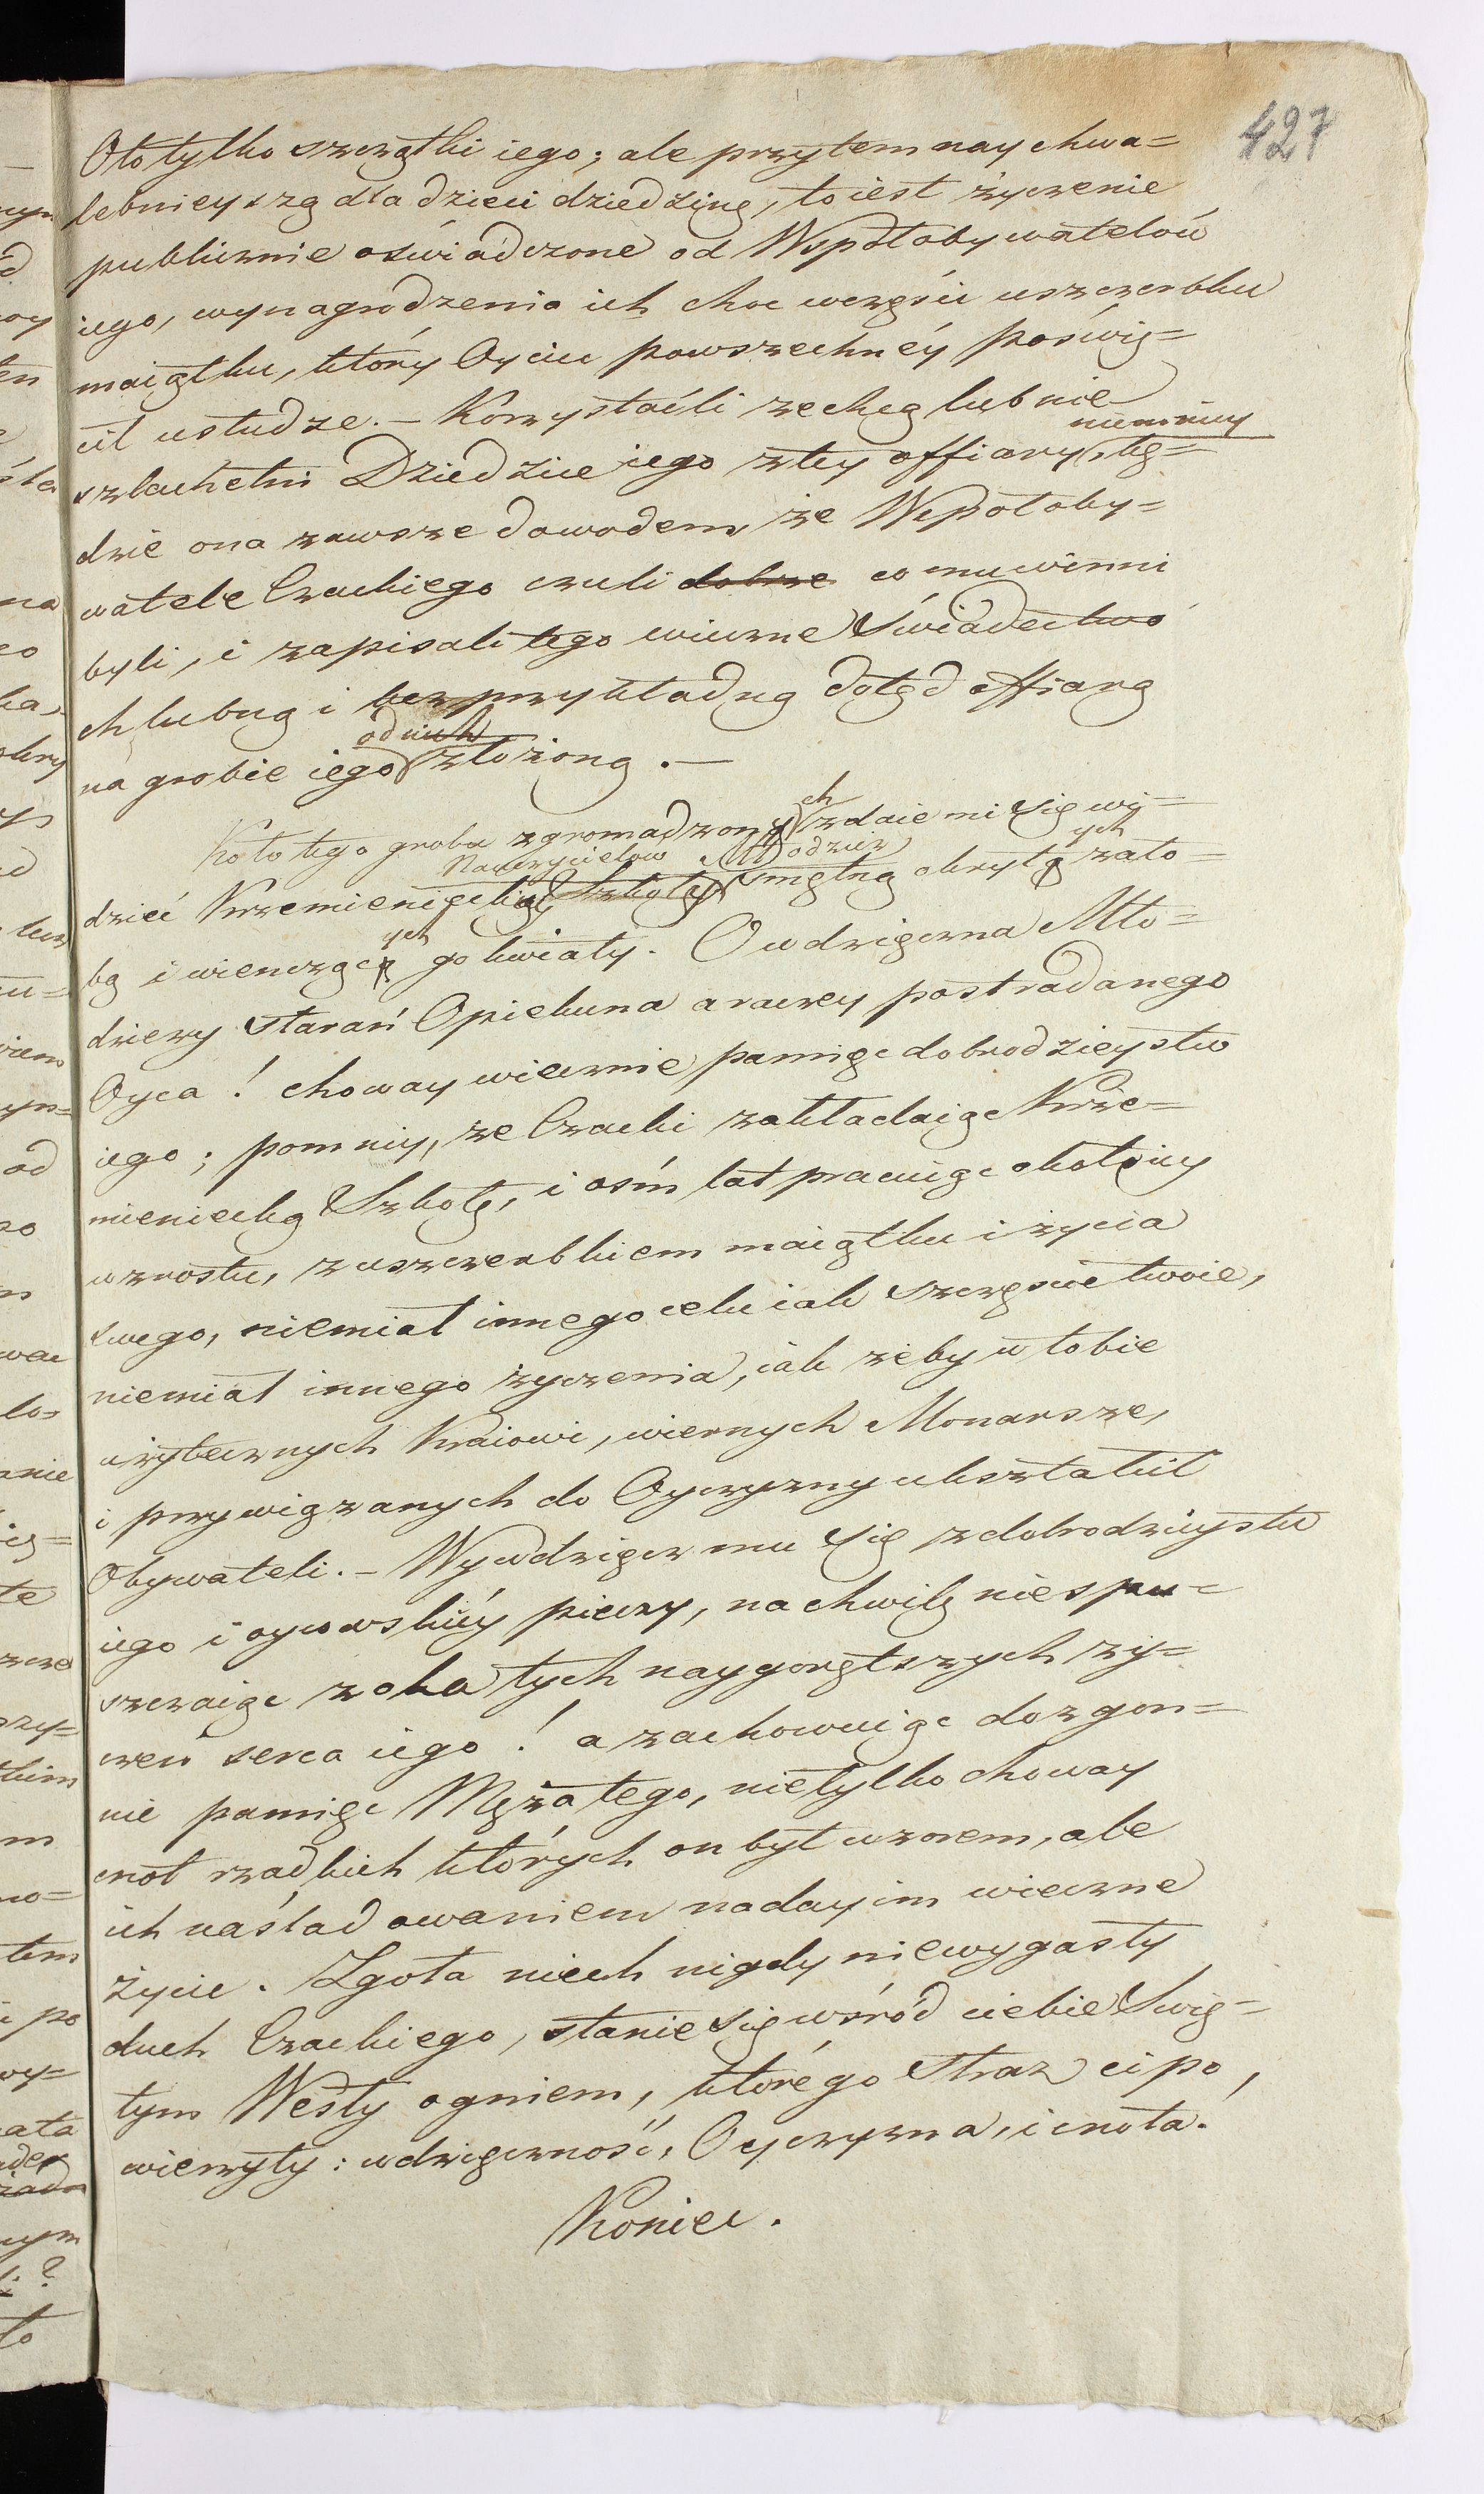 427
Oto tylko szczątki iego; ale przytem naychwa=
lebnieyszą dla dzieci dziedzinę, to iest życzenie
publicznie oświadczone od Wspołobywatelów
iego, wynagrodzenia ich choc wczęści uszczerbku
maiątku, który Oyciec powszechnéy poświę=
cił usłudze. – Korzystaćli zechcą lub nie
niemniey
szlachetni Dziedzice iego ztey offiary, bę=
dzie ona zawsze dowodem, że Wspołoby=
watele Czackiego czuli dobrze co mu winni
byli, i zapisali tego wieczne Świadectwo
chlubną i bezprzykładną dotąd offiarą
od nich
na grobie iego złożoną. –
Koło tego grobu zgromadzonych zdaie mi się wi=
Nauczycielow Młodzież ych
dzieć Krzemieniecką Szkołę smętną okrytą żało=
ych
bą i wienczącą go kwiaty. O wdzięczna Mło=
dzieży starań Opiekuna a raczey postradanego
Oyca! choway wiecznie pamięc dobrodzieystw
iego; pomniy, że Czacki zakładaiąc Krze=
mieniecką Szkołę, i ośm lat pracuiąc około iey
wzrostu, z uszczerbkiem maiątku i życia
swego, niemiał innego celu iak szczęście twoie,
niemiał innego życzenia, iak żeby w tobie
użytecznych Kraiowi, wiernych Monarsze,
i przywiązanych do Oyczyzny ukształcił
Obywateli. – Wywdzięcz mu się z dobrodzieystw
iego i oycowskiéy pieczy, na chwilę niespu=
szczaiąc z oka tych naygorętszych ży=
czeń serca iego! a zachowuiąc dozgon=
nie pamięc Męża tego, nietylko choway
cnot rzadkich których on był wzorem, ale
ich naśladowaniem naday im wieczne
życie. Zgoła niech nigdy niewygasły
duch Czackiego, stanie się wśród ciebie Swię=
tym Westy ogniem, którego straż ci po,
wierzyły: wdzięczność, Oyczyzna, i cnota.
Koniec.